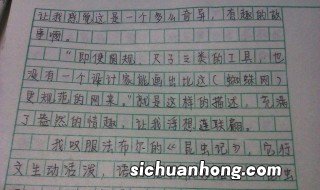 让我感觉这是一个多么奇异，有趣的故
里啊。
“即使圆规、尺子之类的工具，也
没有一个设计家能画出比这（蜘蛛网）
更规范的网来。”就是这样的描述，充满
了盎然的情趣，让我浮想连联翩。
我叹服法布尔的《昆虫记》，它行
文生动活泼，语
sichuanhong.com